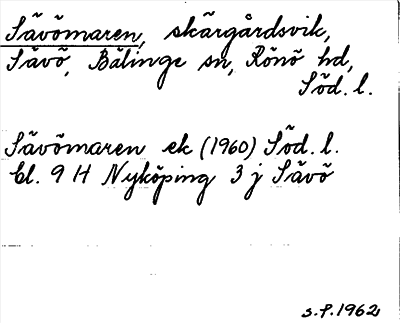 Sävömaren, skärgårdsvik,
Sävö, Bälinge sn, Rönö hd,
Söd. l.
Sävömaren ek (1960) Söd. l.
bl. 9 H Nyköping 3 j Sävö
S.P. 1962